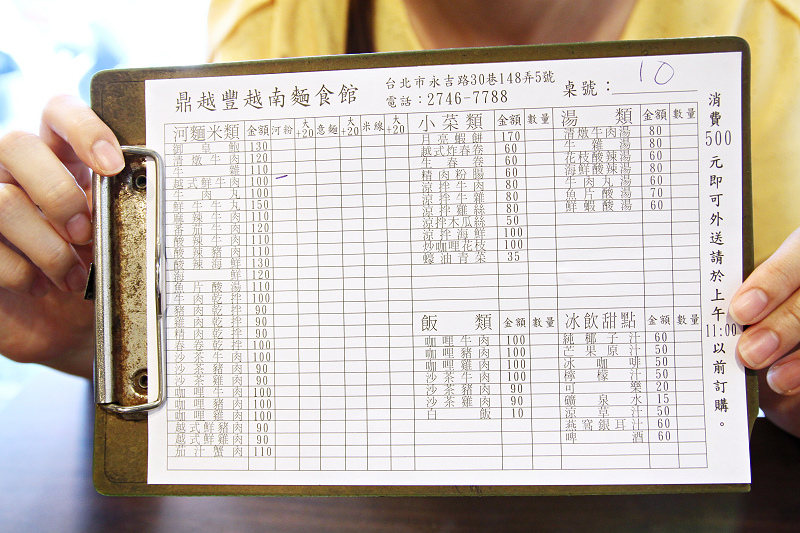 鼎越豐越南麵食館
台北市永吉路30巷148弄5號
電話：2746-7788
桌號：10
河麵米類 金額 河粉 大+20 意麵 大+20 米線 大+20
御皇鮑 130
清燉牛肉 120
牛雜 110
越式鮮牛肉 100
牛肉丸 100
鮮牛牛丸 150
麻辣牛肉 110
番茄牛肉 120
酸辣牛肉 110
酸辣豬肉 110
酸辣海鮮 130
海鮮 120
魚片酸湯 110
牛肉乾拌 100
豬肉乾拌 90
雞肉乾拌 90
精肉乾拌 90
春卷乾拌 100
沙茶牛肉 100
沙茶豬肉 90
沙茶雞肉 90
咖哩牛肉 100
咖哩豬肉 100
咖哩雞肉 100
越式鮮豬肉 90
越式鮮雞肉 90
茄汁蟹肉 110
小菜類 金額 數量
月亮蝦餅 170
越式炸春卷 60
生春卷 60
精肉粉腸 60
涼拌牛肉 80
涼拌牛雜 80
涼拌雞絲 80
涼拌木瓜絲 50
涼拌海鮮 100
炒咖哩花枝 100
蠔油青菜 35
飯類 金額 數量
咖哩牛肉 100
咖哩豬肉 100
咖哩雞肉 100
沙茶牛肉 100
沙茶豬肉 90
沙茶雞肉 90
白飯 10
湯類 金額 數量
清燉牛肉湯 80
牛雜湯 80
花枝酸辣湯 80
海鮮酸辣湯 80
牛肉丸湯 60
魚片酸湯 70
鮮蝦酸湯 60
冰飲甜點 金額 數量
純椰子汁 60
芒果原汁 50
冰咖啡 50
檸檬汁 50
可樂 20
礦泉水 15
涼草汁 50
燕窩銀耳汁 60
啤酒 60
消費500元即可外送請於上午11:00以前訂購。